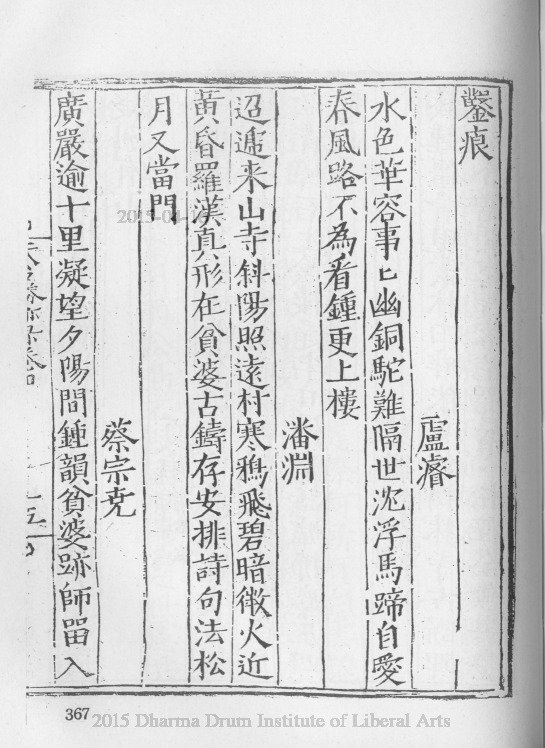 鑿痕
盧濬
水色華容事匕幽銅駝難隔世沈浮馬蹄自愛
春風路不為看鍾更上樓
潘淵
迢遞来山寺斜陽照遠村寒鴉飛碧暗微火近
黃昏羅漢真形在貧婆古鑄存安排詩句法松
月又當門
蔡宗兖
廣嚴逾十里凝望夕陽間鍾韻貧婆跡師畱入
367
2015 Dharma Drum Institute of Liberal Arts